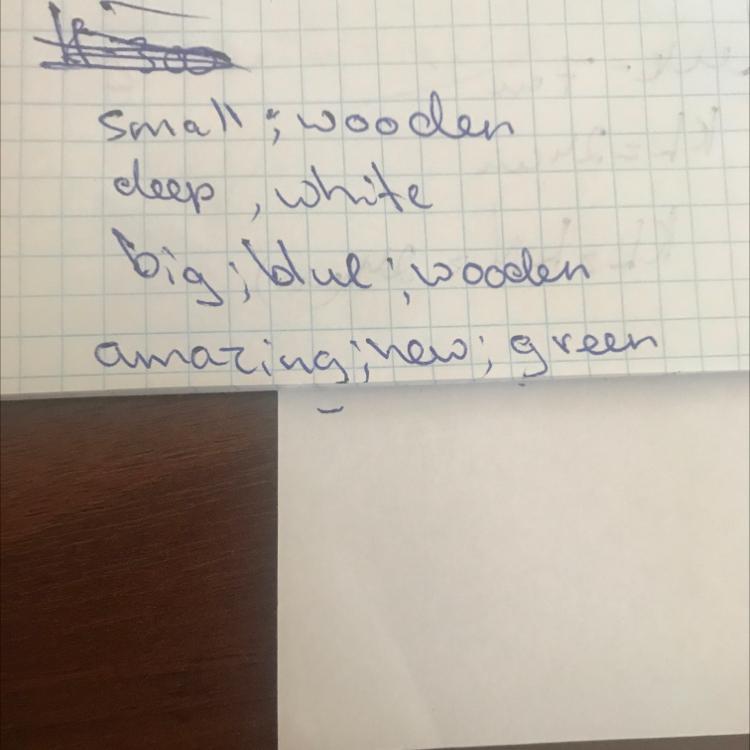 small ; wooden
deep , white
big ; blue ; wooden
amazing ; new ; green